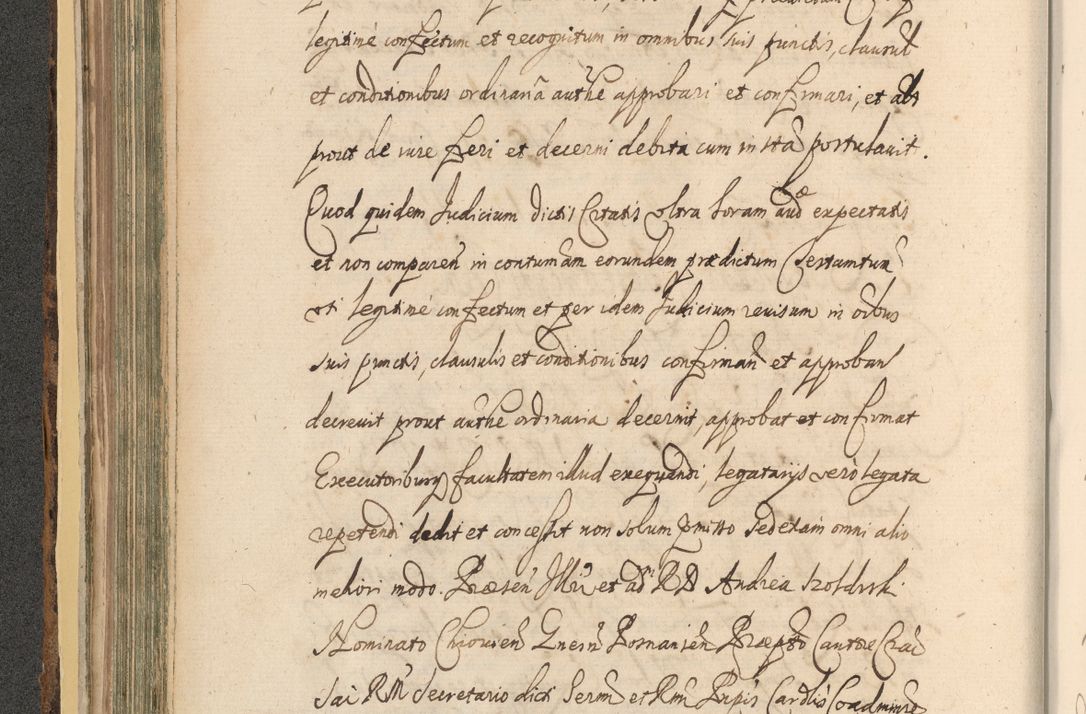 legitimè confectum et recognitum in omnibus suis punctis, clausul
et conditionibus ordinaria authe approbari et confirmari, et alt
prout de iure fieri et decerni debita cum instã postulavit.
Quod quidem Judicium dictis Citatis ultra horam audæ expectatis
et non comparen in contumam eorundem prædictum Testamtum
uti legitimè confectum et per idem Judicium revisum in oibus
suis punctis, clausulis et conditionibus confirmand et approban
decrevit prout authe ordinaria decernit, approbat et confirmat
Executoribusq facultatem illud exequendi, legatarijs verò legata
repetendi dedit et concessit non solum pmisso sed etiam omni alio
meliori modo. Præsen Illri et ad RD Andrea Szoldrski
Nominato Chiovien Gnesn Posnanien Præpto Cantore Crac
Sac RM Secretario dicti Sermi et Rmi Pnpis Cardlis Coadmnre